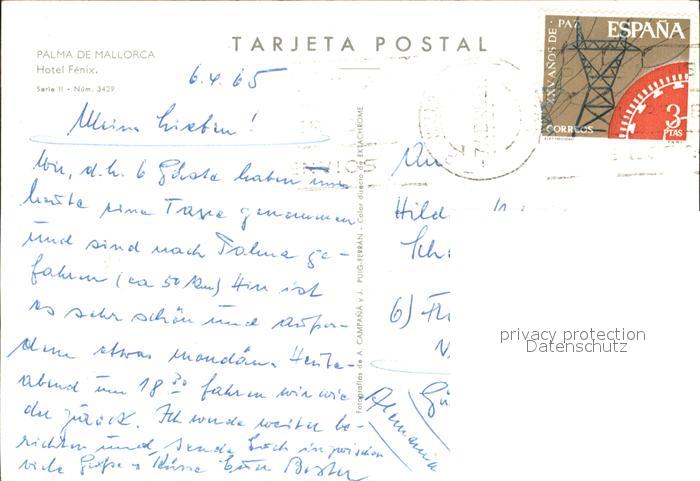 PALMA DE MALLORCA
Hotel Fénix.
Serie II - Núm. 3429
TARJETA POSTAL
XXV AÑOS DE PAZ
ESPAÑA
CORREOS
3
PTAS
6.4.65
Meine Lieben!
Wir, d.h. 6 Gäste haben uns
heute eine Taxe genommen
und sind nach Palma ge-
fahren (ca 50 Km) Hier ist
es sehr schön und außer-
dem etwas mondän. Heute-
abend um 18 30 fahren wir wie
der zurück. Ich werde weiter be-
richten und sende Euch inzwischen
viele Grüße + Küsse Euer
Fotografías de A. CAMPAÑÁ y J. PUIG-FERRÁN - Color directo de EKTACHROME
Hild
Sch
6)
Alemania
privacy protection
Datenschutz